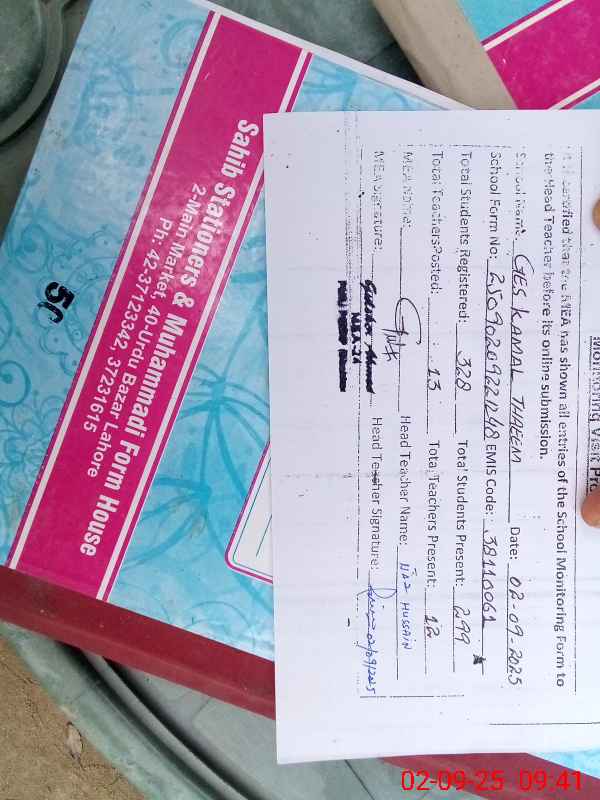 Monitoring Visit Pro
It is certified that the MEA has shown all entries of the School Monitoring Form to
the Head Teacher before its online submission.
School Name: GES KAMAL THAEEM Date: 02-09-2025
EMIS Code: 38110061
School Form No:
Total Students Registered: 328 Total Students Present: 299
Total TeachersPosted: 13 Total Teachers Present: 12
MEA Name: Head Teacher Name: IJAZ HUSSAIN
MEA Signature: Head Teacher Signature: 02/09/2025
Sahib Stationers & Muhammadi Form House
2-Main Market, 40-Urdu Bazar Lahore
Ph: 42-37123342, 37231615
50
02-09-25 09:41